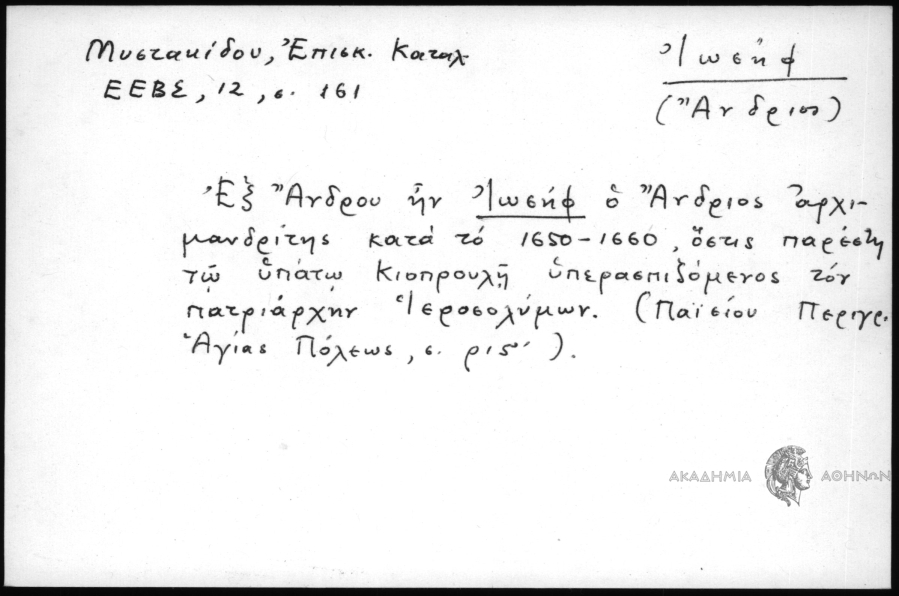 Μυστακίδου, Ἐπισκ. Καταλ
ΕΕΒΣ, 12, σ. 161
Ἰωσὴφ
(Ἄνδριος)
Ἐξ Ἄνδρου ἦν Ἰωσήφ ὁ Ἄνδριος ἀρχι-
μανδρίτης κατά τό 1650-1660, ὅστις παρέστη
τῷ ὑπάτῳ Κιοπρουλῇ ὑπερασπιζόμενος τόν
πατριάρχην Ἱεροσολύμων. (Παϊσίου Περιγρ.
Ἁγίας Πόλεως, σ. ρις´).
ΑΚΑΔΗΜΙΑ ΑΘΗΝΩΝ